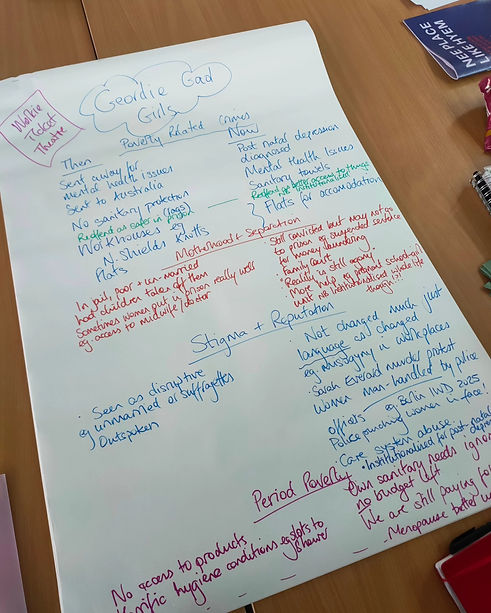 NEE PLACE
LIKE HYEM
Geordie Gad
Girls
Workie
Ticket
Theatre
Poverty Related Crimes
Then
Sent away for
mental health issues
Sent to Australia
No sanitary protection
Reoffend as safer in prison
Workhouses eg
N. Shields Knotts
Flats
Now
Post natal depression
diagnosed
Mental Health Issues
Sanitary towels
Reoffend get better access to things
Flats for accomodation
Motherhood + Separation
In jail, poor + un-married
had children taken off them
Sometimes women put in prison really well
eg access to midwife/doctor
Still convicted but may not go
to prison eg suspended sentence
for money laundering.
Family court.
Reality is still scary
More help eg pregnant schoolgirl
unit NB institutionalised whole life
though!!
Stigma + Reputation
Seen as disruptive
eg unmarried or suffragettes
Outspoken
Not changed much just
language as changed
eg misogyny in workplaces
Sarah Everard murder protest
women man-handled by police
officers eg Berlin IWD 2025
Police punching women in face!
Care system abuse
Institutionalised for post-natal
Period Poverty
No access to products
Horrific hygiene conditions eg
shower
Own sanitary needs
no budget left
We are still paying for
Menopause better